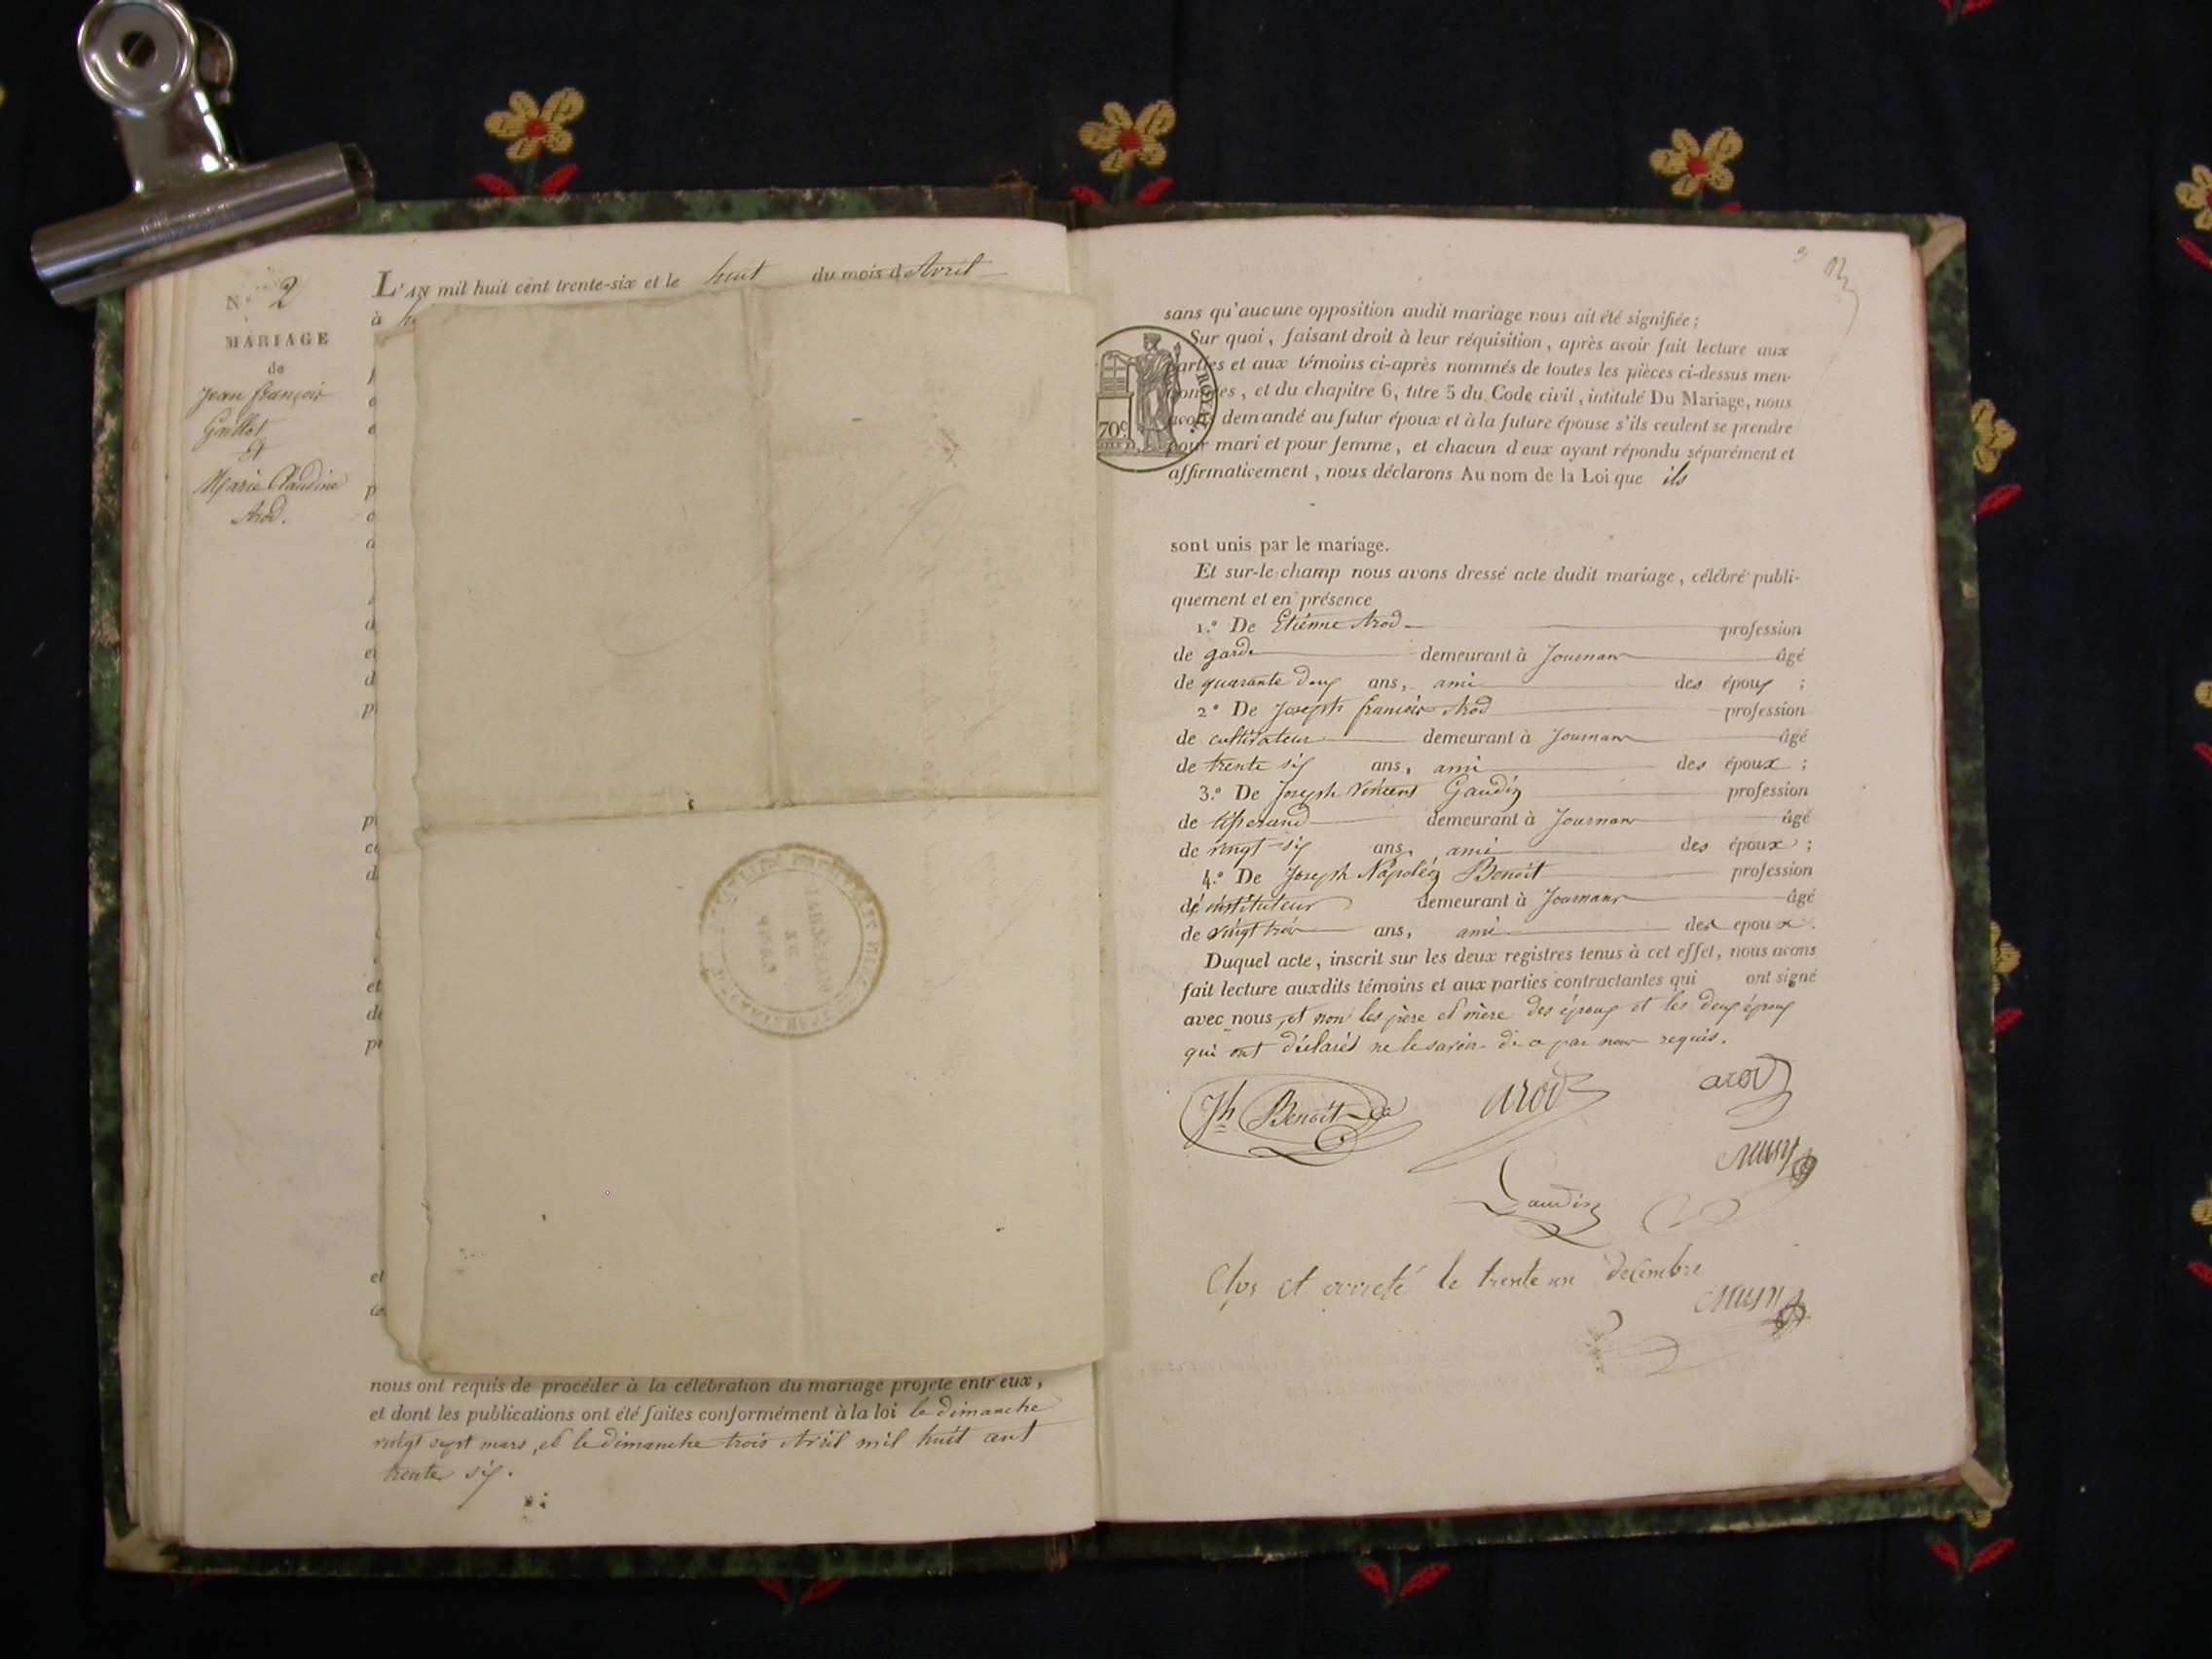 N.° 2
MARIAGE
de
Jean françois
Gaillot
Et
Marie Claudine
Arod.
L'AN mil huit cent trente-six et le huit du mois d'Avril
à
nous ont requis de procéder à la célébration du mariage projeté entr'eux,
et dont les publications ont été faites conformément à la loi le dimanche
vingt sept mars, et le dimanche trois Avril mil huit cent
trente six.
3
sans qu'aucune opposition audit mariage nous ait été signifiée;
Sur quoi, faisant droit à leur réquisition, après avoir fait lecture aux
parties et aux témoins ci-après nommés de toutes les pièces ci-dessus men-
tionnées, et du chapitre 6, titre 5 du Code civil, intitulé Du Mariage, nous
avons demandé au futur époux et à la future épouse s'ils veulent se prendre
pour mari et pour femme, et chacun d'eux ayant répondu séparément et
affirmativement, nous déclarons Au nom de la Loi que ils
ROYAL.
70c
sont unis par le mariage.
Et sur-le-champ nous avons dressé acte dudit mariage, célébré publi-
quement et en présence
1.° De Etienne Arod profession
de garde demeurant à Journans âgé
de quarante deux ans, ami des époux ;
2° De Joseph françois Arod profession
de cultivateur demeurant à Journans âgé
de trente six ans, ami des époux ;
3.° De Joseph Vincent Gaudin profession
de tisserand demeurant à Journans âgé
de vingt-six ans, ami des époux ;
4.° De Joseph Napoléon Benoit profession
d'instituteur demeurant à Journans âgé
de vingt trois ans, ami des epoux.
Duquel acte, inscrit sur les deux registres tenus à cet effet, nous avons
fait lecture auxdits témoins et aux parties contractantes qui ont signé
avec nous, et non les père et mère des époux et les deux époux
qui ont déclarés ne le savoir de ce par nous requis.
Jh Benoit arod arod
Gaudin
Clos et arreté le trente un decembre